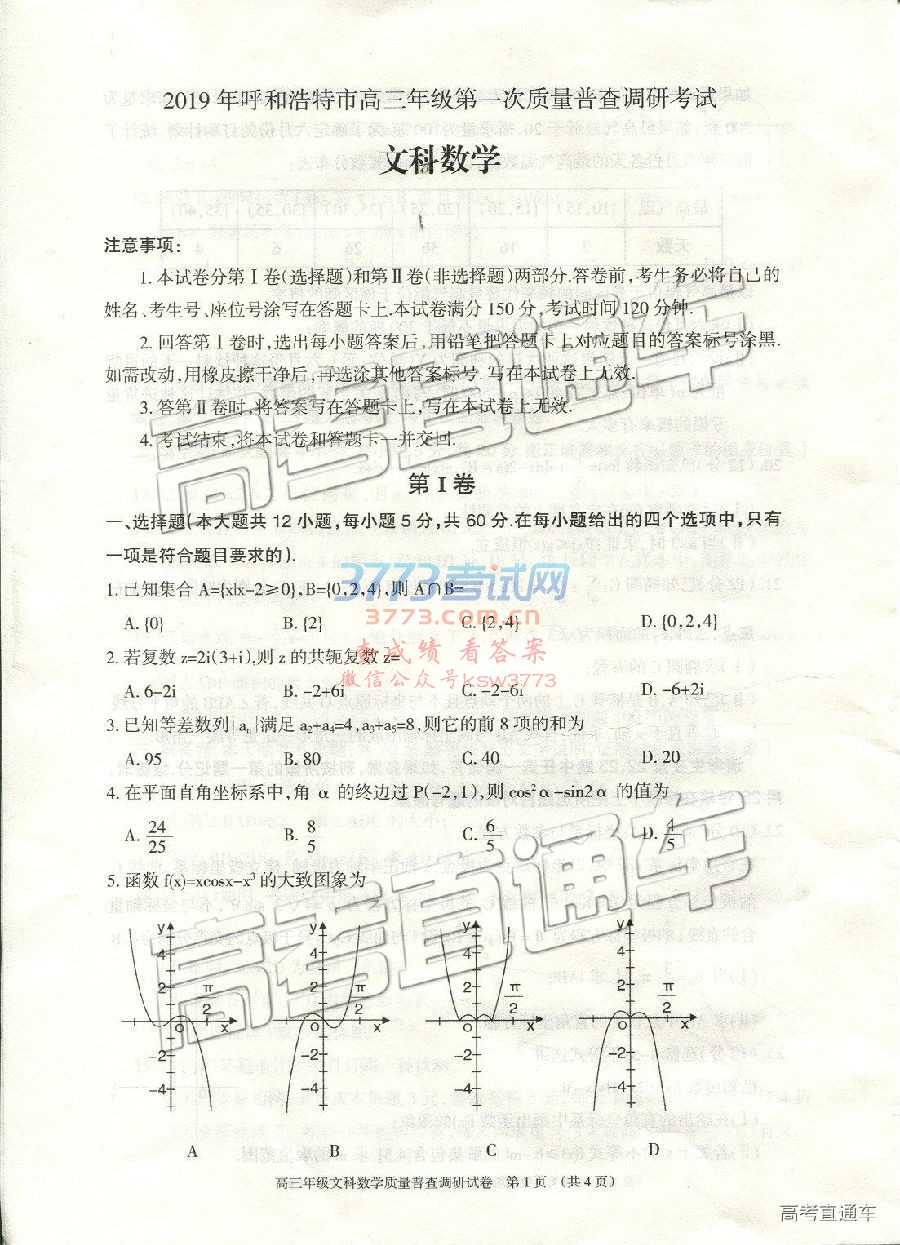 2019年呼和浩特市高三年级第一次质量普查调研考试
文科数学
注意事项：
1.本试卷分第Ⅰ卷(选择题)和第Ⅱ卷(非选择题)两部分.答卷前,考生务必将自己的
姓名、考生号、座位号涂写在答题卡上.本试卷满分150分,考试时间120分钟.
2.回答第Ⅰ卷时,选出每小题答案后,用铅笔把答题卡上对应题目的答案标号涂黑.
如需改动,用橡皮擦干净后,再选涂其他答案标号.写在本试卷上无效.
3.答第Ⅱ卷时,将答案写在答题卡上,写在本试卷上无效.
4.考试结束,将本试卷和答题卡一并交回.
高考直通车
第Ⅰ卷
一、选择题(本大题共12小题,每小题5分,共60分.在每小题给出的四个选项中,只有
一项是符合题目要求的).
3773考试网
1.已知集合A={x|x-2≥0},B={0,2,4},则A∩B=
3773.com.cn
A.{0} B.{2} C.{2,4} D.{0,2,4}
查成绩 看答案
2.若复数z=2i(3+i),则z的共轭复数z=
微信公众号ksw3773
A.6-2i B.-2+6i C.-2-6i D.-6+2i
3.已知等差数列{aₙ}满足a₂+a₄=4,a₃+a₅=8,则它的前8项的和为
A.95 B.80 C.40 D.20
4.在平面直角坐标系中,角α的终边过P(-2,1),则cos²α-sin2α的值为
A.24/25 B.8/5 C.6/5 D.4/5
5.函数f(x)=xcosx-x³的大致图象为
高考直通车
y y y y
4 4 4 4
2 π/2 2 π/2 2 π/2 2 π/2
O x O x O x O x
-2 -2 -2 -2
-4 -4 -4 -4
A B C D
高三年级文科数学质量普查调研试卷 第1页 (共4页)
高考直通车